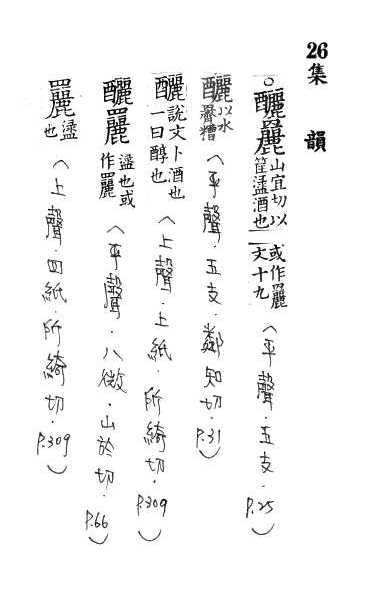 26集 韻
○釃 山宜切以筐盪酒也 或作 文十九(平聲.五支.P.25)
釃 以水糟(平聲.五支.鄰知切.P.31)
釃 說文卜酒也一曰醇也(上聲.上紙.所綺切.P.309)
釃 盪也或作(平聲.八微.山於切.P.66)
盪也(上聲.四紙.所綺切.P.309)